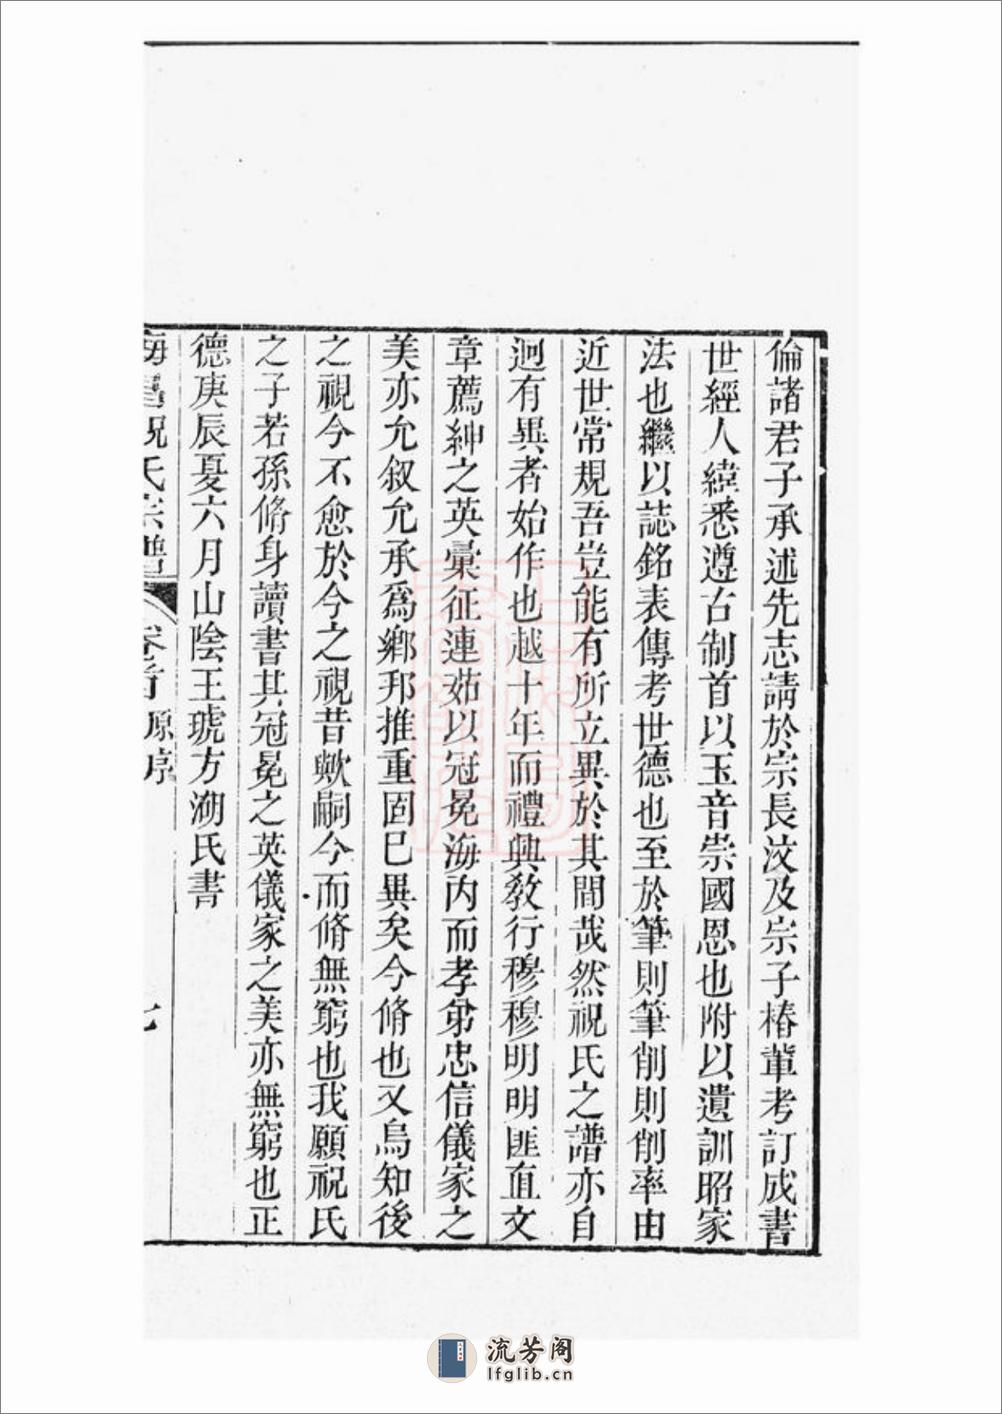 倫諸君子承述先志請於宗長汶及宗子椿輩考訂成書
世經人緯悉遵古制首以玉音崇國恩也附以遺訓昭家
法也繼以誌銘表傳考世德也至於筆則筆削則削率由
近世常規吾豈能有所立異於其間哉然祝氏之譜亦自
迥有異者始作也越十年而禮興教行穆穆明明匪直文
章薦紳之英彙征連茹以冠冕海內而孝弟忠信儀家之
美亦允叙允承爲鄉邦推重固已異矣今脩也又烏知後
之視今不愈於今之視昔歟嗣今而脩無窮也我願祝氏
之子若孫脩身讀書其冠冕之英儀家之美亦無窮也正
德庚辰夏六月山陰王琥方溯氏書
海昌祝氏宗譜 卷首 原序 七
流芳阁
lfglib.cn